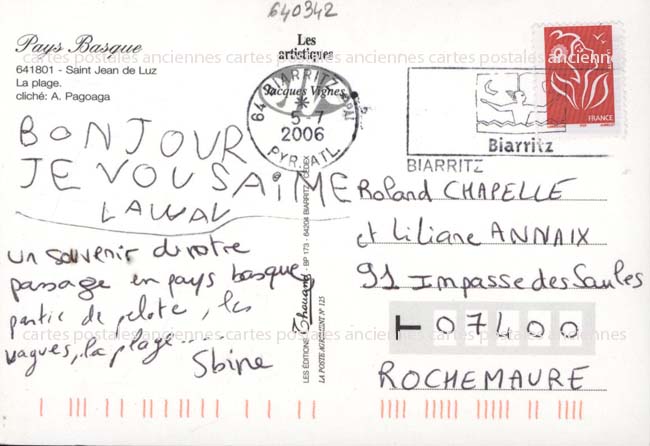 640342
Pays Basque
641801 - Saint Jean de Luz
La plage.
cliché: A. Pagoaga
Les
artistiques
Jacques Vignes
64 BIARRITZ PPAL
*
5-7
2006
PYR.ATL.
Biarritz
BIARRITZ
FRANCE
cartes postales anciennes cartes postales anciennes cartes postales anciennes
BONJOUR
JE VOUS AiME
un souvenir de notre
passage en pays basque,
partie de pelote, les
vagues, la plage.....
Sbine
LES ÉDITIONS Thouand - BP 173 - 64204 BIARRITZ CEDEX
LA POSTE AGRÉMENT N° 125
Roland CHAPELLE
et Liliane ANNAIX
91 Impasse des Saules
07400
ROCHEMAURE
cartes postales anciennes cartes postales anciennes cartes postales anciennes